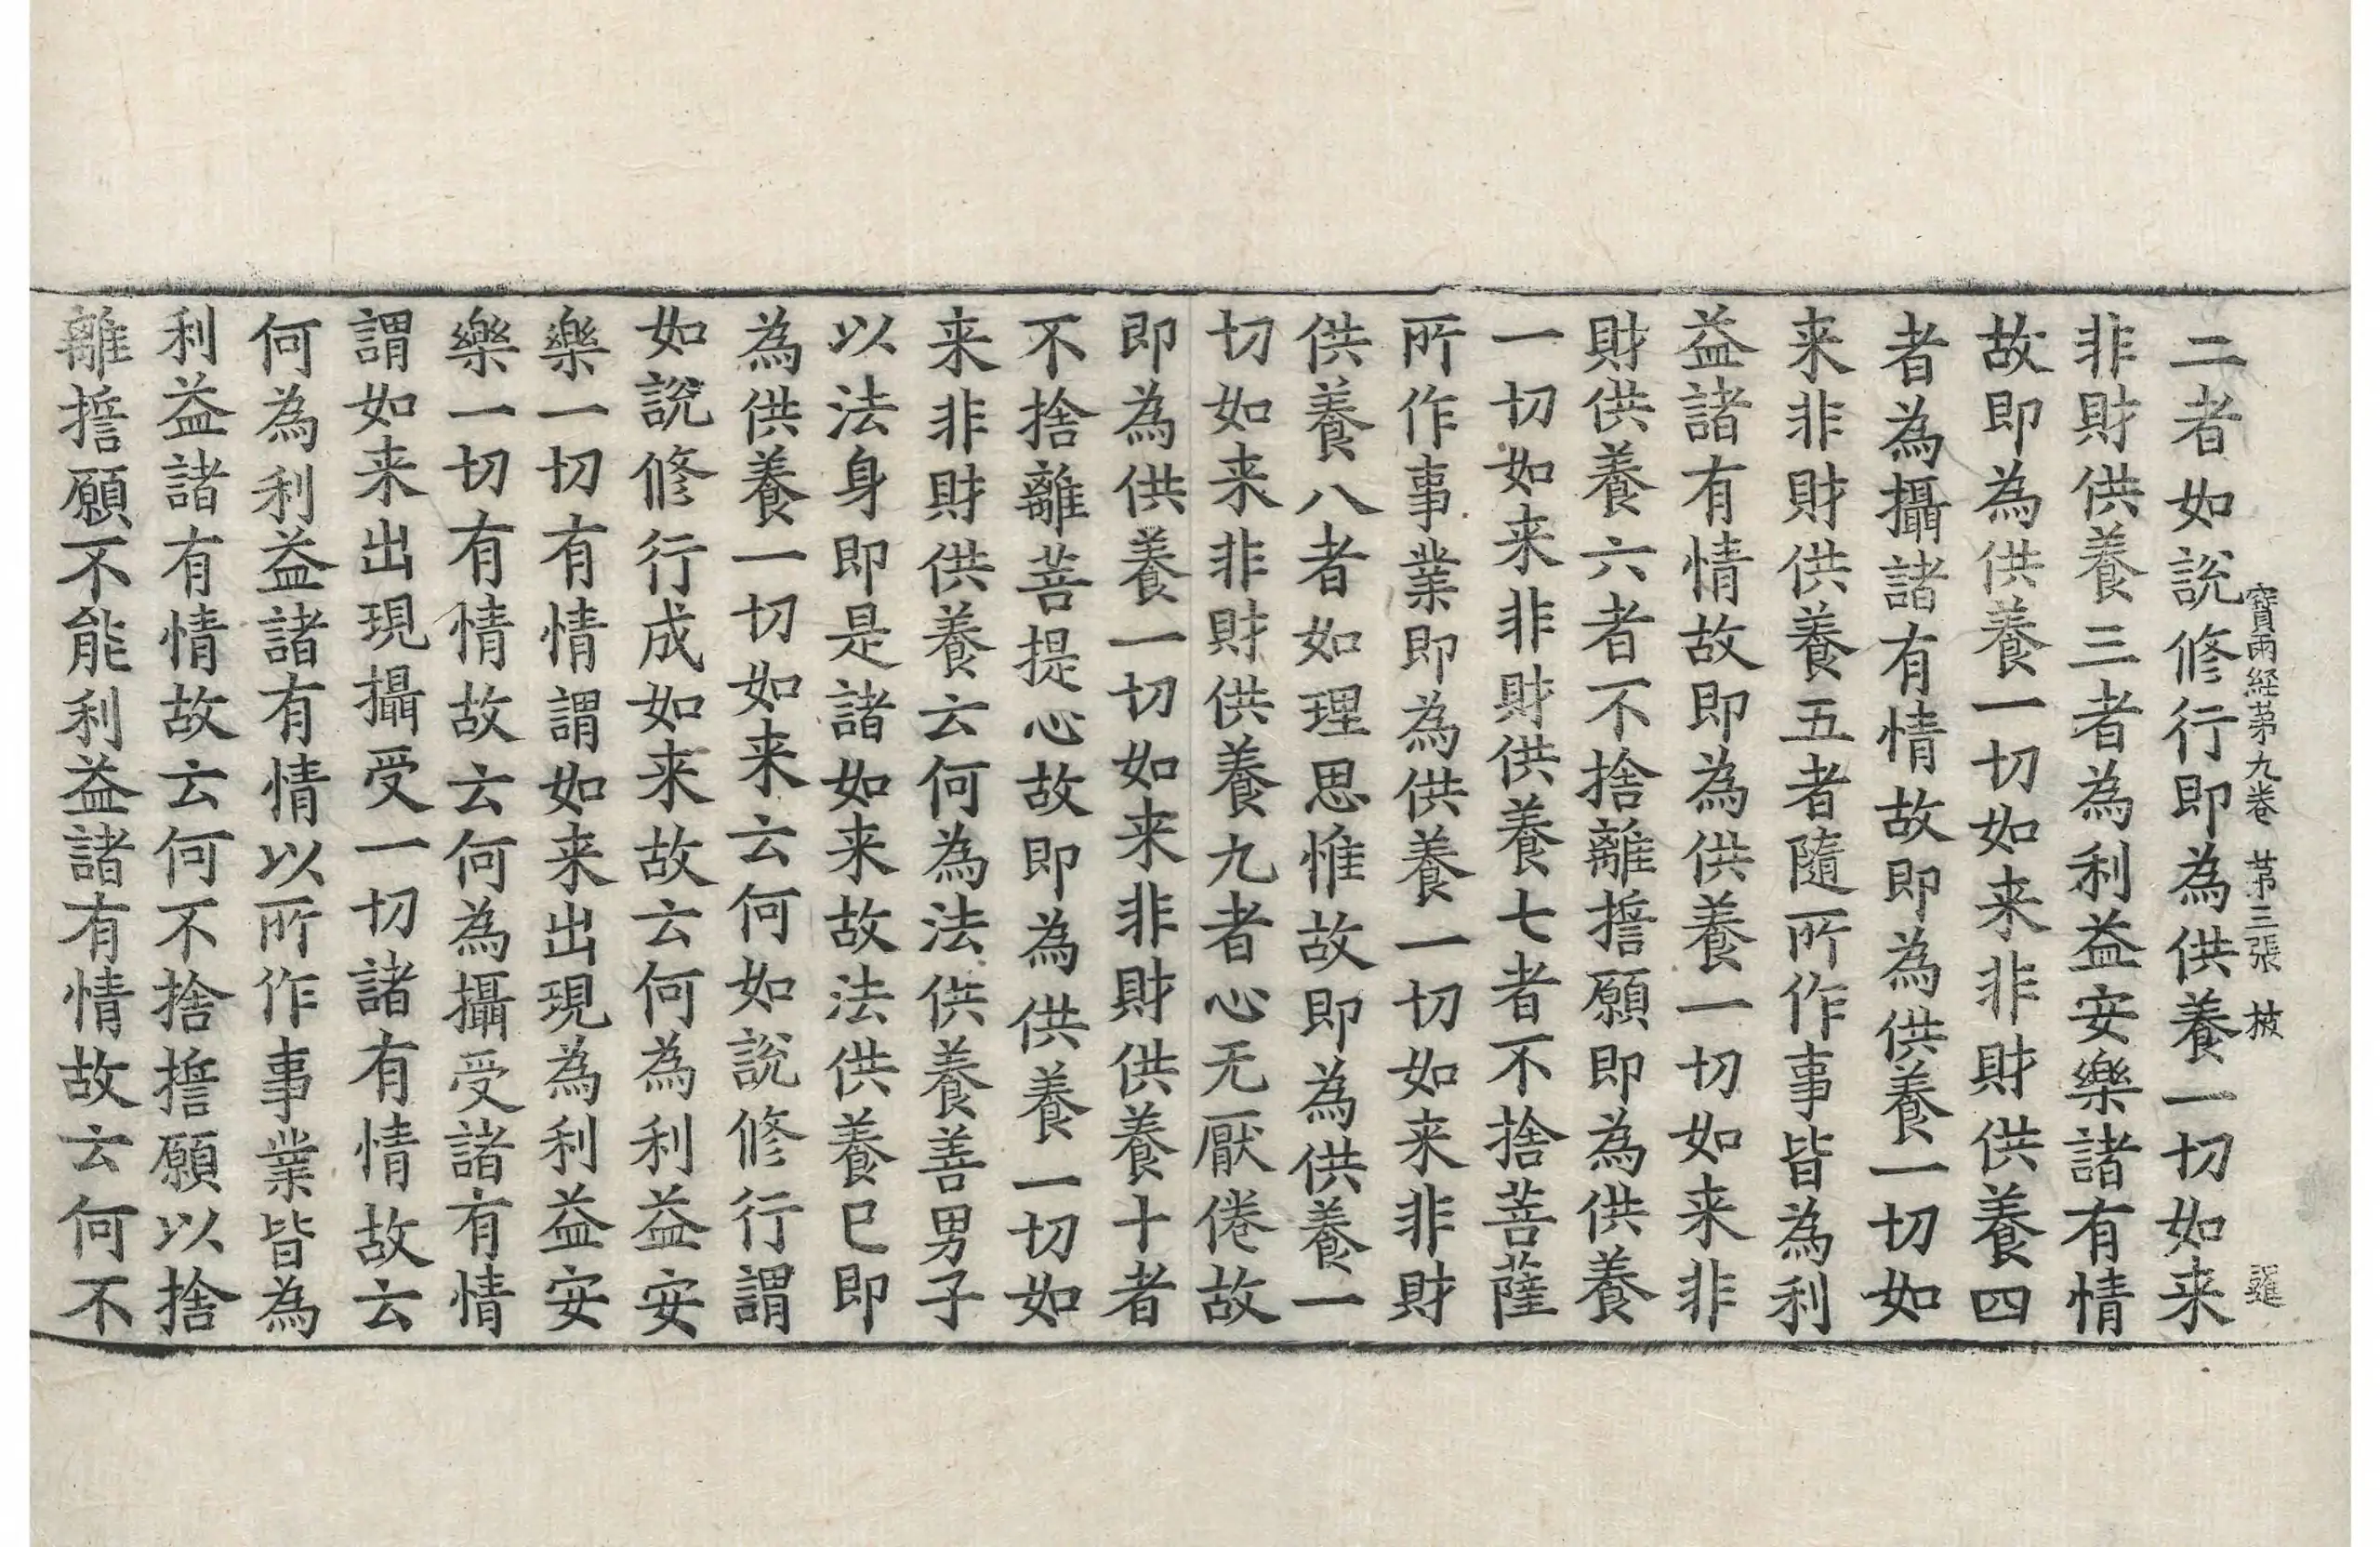 寶雨経苐九卷 苐三張 披
二者如說修行即為供養一切如来
非財供養三者為利益安樂諸有情
故即為供養一切如来非財供養四
者為攝諸有情故即為供養一切如
来非財供養五者隨所作事皆為利
益諸有情故即為供養一切如来非
財供養六者不捨離擔願即為供養
一切如来非財供養七者不捨菩薩
所作事業即為供養一切如来非財
供養八者如理思惟故即為供養一
切如来非財供養九者心无厭倦故
即為供養一切如来非財供養十者
不捨離菩提心故即為供養一切如
来非財供養云何為法供養善男子
以法身即是諸如来故法供養已即
為供養一切如来云何如說修行謂
如說修行成如来故云何為利益安
樂一切有情謂如来出現為利益安
樂一切有情故云何為攝受諸有情
謂如来出現攝受一切諸有情故云
何為利益諸有情以所作事業皆為
利益諸有情故云何不捨擔願以捨
離擔願不能利益諸有情故云何不